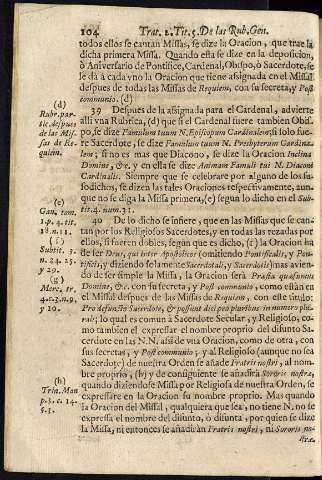 104 Trat. 2. Tit. 5. De las Rub. Gen.
todos ellos se cantan Missas, se dize la Oracion, que trae la
dicha primera Missa. Quando esta se dize en la deposicion,
ò Aniversario de Pontifice, Cardenal, Obispo, ò Sacerdote, se
le dà à cada vno la Oracion que tiene assignada en el Missal
despues de todas las Missas de Requiem, con su secreta, y Post
communio. (d)
(d)
Rubr. par-
tic. despues
de las Mis-
sas de Re-
quiem.
39 Despues de la assignada para el Cardenal, advierte
alli vna Rubrica, (d) que si el Cardenal fuere tambien Obis-
po, se dize Famulum tuum N. Episcopum Cardinalem; si solo fue-
re Sacerdote, se dize Famulum tuum N. Presbyterum Cardina-
lem; si no es mas que Diacono, se dize la Oracion Inclina
Domine, &c. y en ella se dize Animam Famuli tui N. Diaconi
Cardinalis. Siempre que se celebrare por alguno de los su-
sodichos, se dizen las tales Oraciones respectivamente, aun-
que no se diga la Missa primera, (e) segun lo dicho en el Sub-
tit. 4. num. 31.
(e)
Gan. tom.
1. p. 4. tit.
18. n. 11.
(f)
Subtit. 3.
n. 24. 25.
y 29.
(g)
Merc. tr.
4. c. 2. n. 9.
y 10.
40 De lo dicho se infiere, que en las Missas que se can-
tan por los Religiosos Sacerdotes, y en todas las rezadas por
ellos, si fueren dobles, segun que es dicho, (f) la Oracion ha
de ser Deus, qui inter Apostolicos (omitiendo Pontificali, y Pon-
tifices, y diziendo solamente Sacerdotali, y Sacerdotes) mas avien-
do de ser simple la Missa, la Oracion será Præsta quæsumus
Domine, &c. con su secreta, y Post communio, como estàn en
el Missal despues de las Missas de Requiem, con este titulo:
Pro defuncto Sacerdote, & possunt dici pro pluribus in numero plu-
rali; lo qual es comun à Sacerdote Secular, y Religioso, co-
mo tambien el expressar el nombre proprio del difunto Sa-
cerdote en las N.N. assi de vna Oracion, como de otra, con
sus secretas, y Post communio; y al Religioso (aunque no sea
Sacerdote) de nuestra Orden se añade Fratris nostri, al nom-
bre proprio, (h) y de consiguiente se añadirà Sororis nostræ,
quando diziendose Missa por Religiosa de nuestra Orden, se
expressare en la Oracion su nombre proprio. Mas quando
la Oracion del Missal, qualquiera que sea, no tiene N. no se
expressa el nombre del difunto, ò difunta, por quien se dize
la Missa, ni entonces se añadiràn Fratris nostri, ni Sororis no-
(h)
Trin. Man
p. 3. c. 14.
§. 1.
stræ.